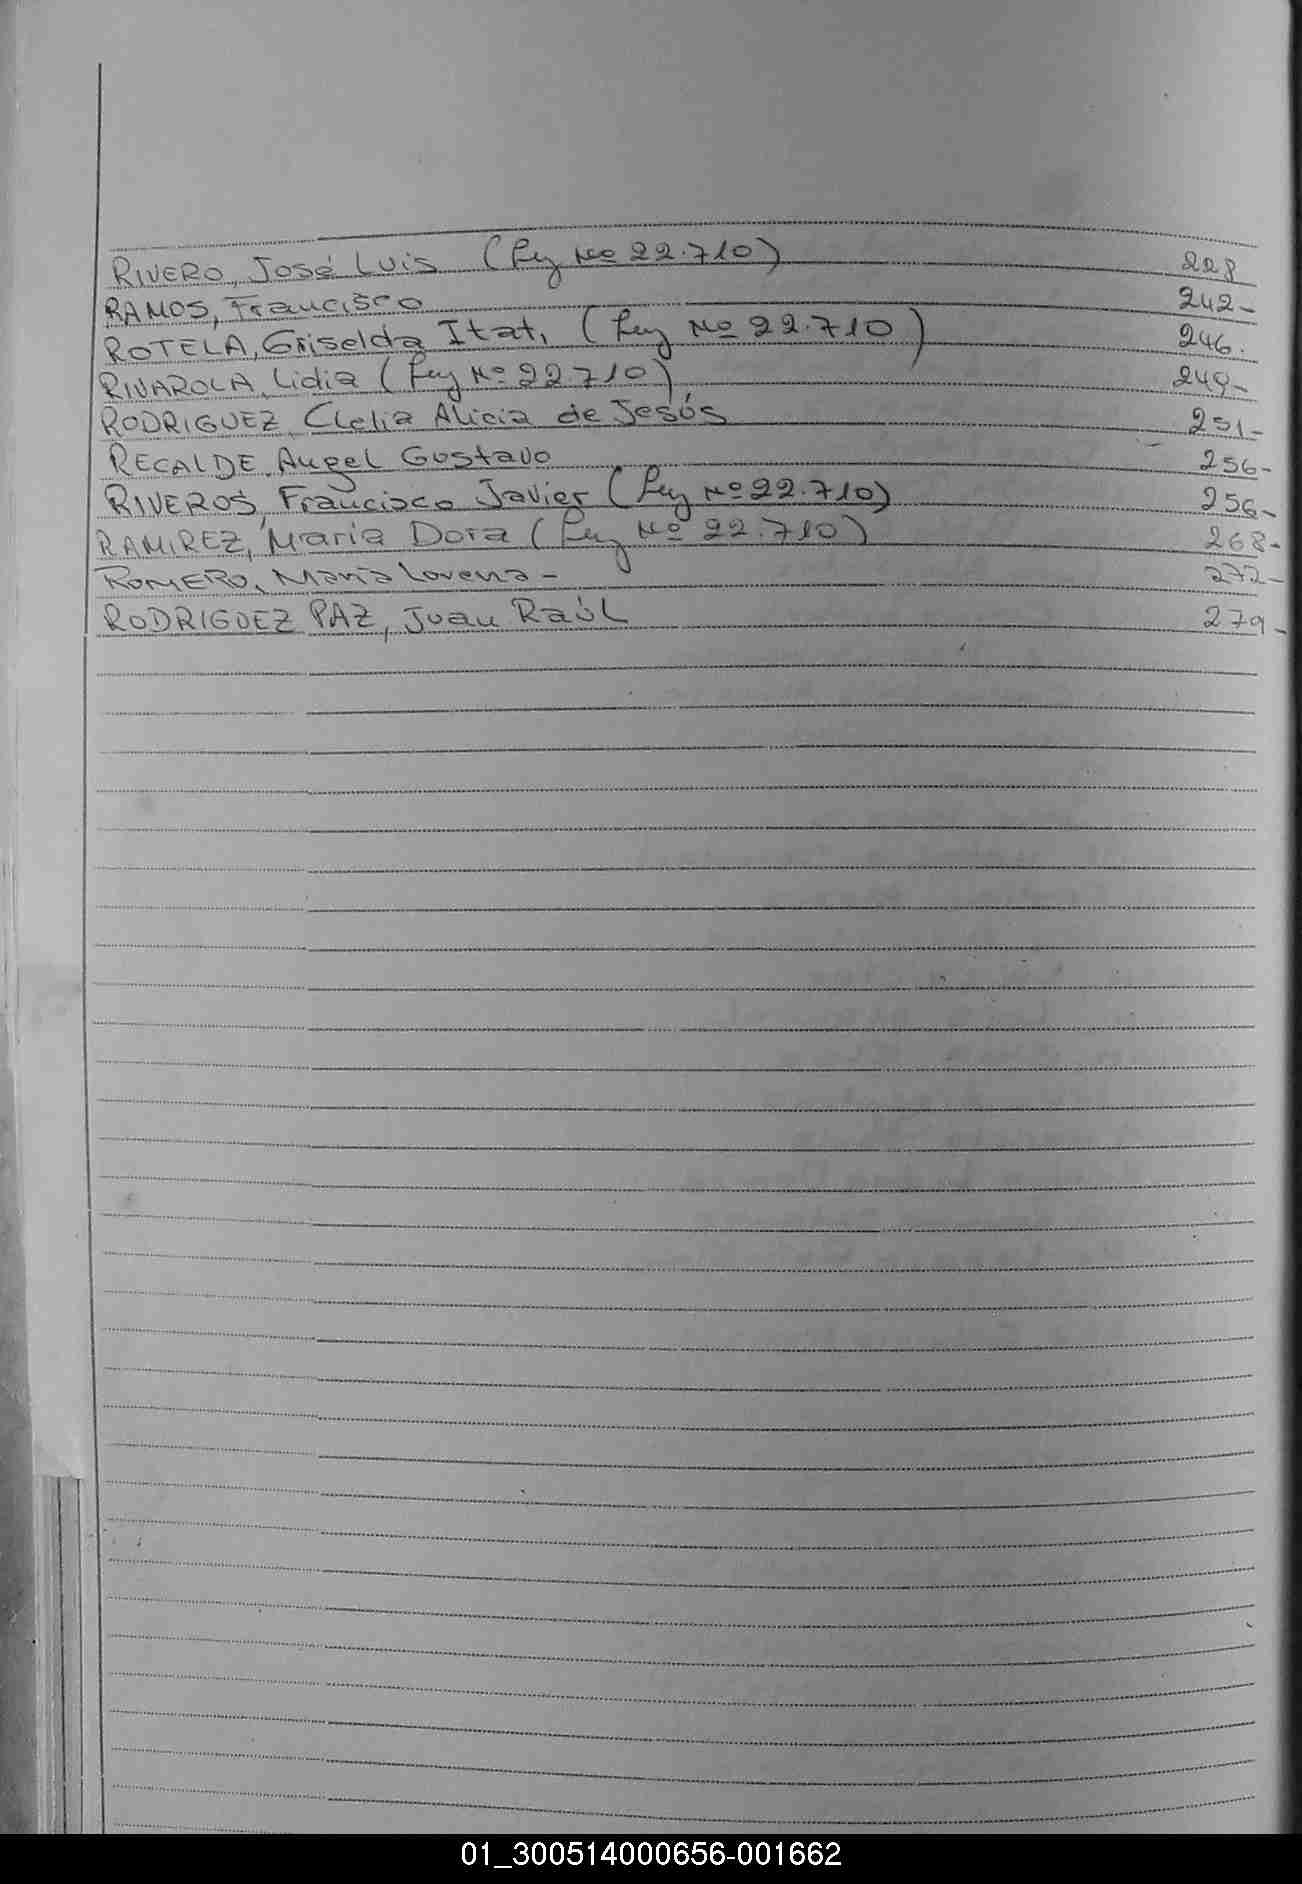 RIVERO, José Luis (Ley Nº 22.710) 228
RAMOS, Francisco 242-
ROTELA, Griselda Itati (Ley Nº 22.710) 246.
RIVAROLA, Lidia (Ley Nº 22.710) 249-
RODRIGUEZ, Clelia Alicia de Jesús 251-
RECALDE, Angel Gustavo 256-
RIVEROS, Francisco Javier (Ley Nº 22.710) 256-
RAMIREZ, Maria Dora (Ley Nº 22.710) 268-
ROMERO, Maria Lorena - 272-
RODRIGUEZ PAZ, Juan Raúl 279-
01_300514000656-001662